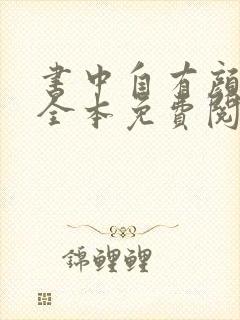 書中自有顏
全本免費閱
錦鯉鯉